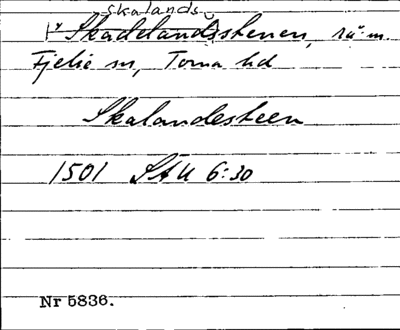 skalands
Skadelandsstenen, rå:m.
Fjelie sn, Torna hd
Skalandesteen
1501 StU 6:30
Nr 5836.